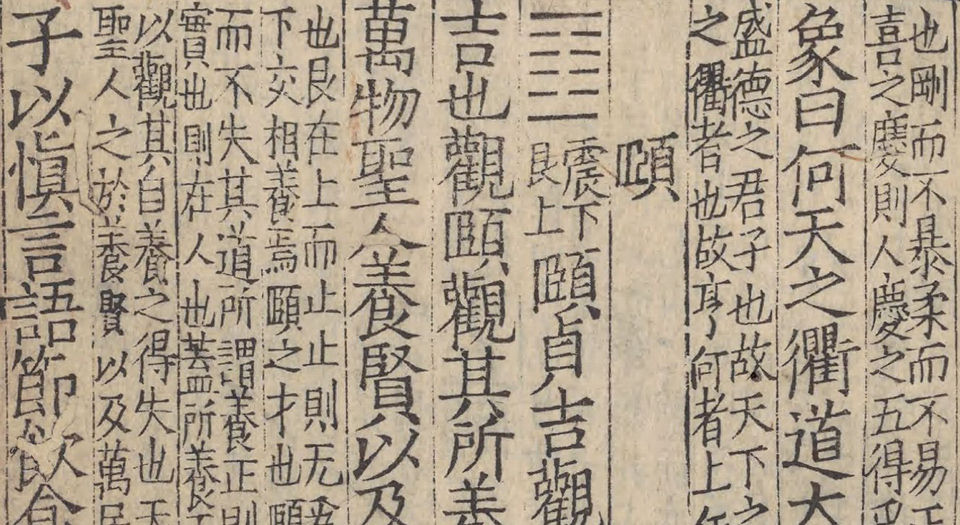 也剛而不暴柔而不易
喜之慶則人慶之五得
象曰何天之衢道大
盛德之君子也故天下之
之衢者也故亨何者上
頤
震下
艮上
頤貞吉觀
吉也觀頤觀其所養
萬物聖人養賢以及
也艮在上而止止則无
下交相養焉頤之才也頤
而不失其道所謂養正則
實也則在人也蓋所養
以觀其自養之得失也天
聖人之於養賢以及萬民
子以慎言語節飲食